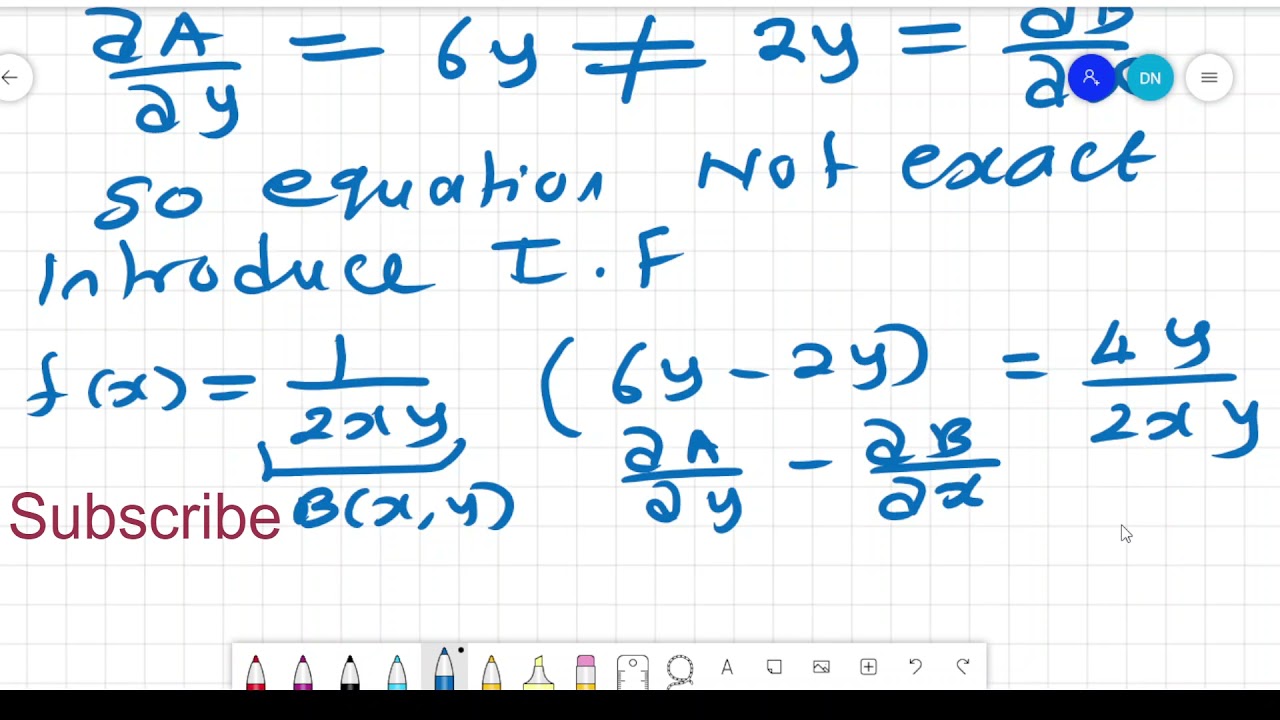 ∂A/∂y = 6y ≠ 2y = ∂B/∂
DN
so equation Not exact
Introduce I.F
f(x) = 1/2xy (6y - 2y) = 4y/2xy
B(x,y) ∂A/∂y - ∂B/∂x
Subscribe
A